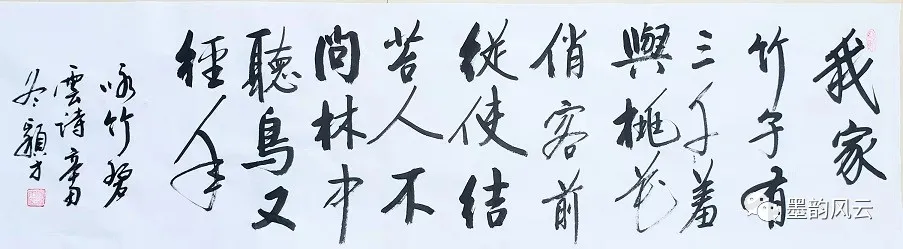 我家
竹子有
三千羞
與桃花
俏客前
縱使結
苔人不
問林中
聽鳥又
經年
咏竹碧
雲詩辛丑
冬穎
墨韵风云